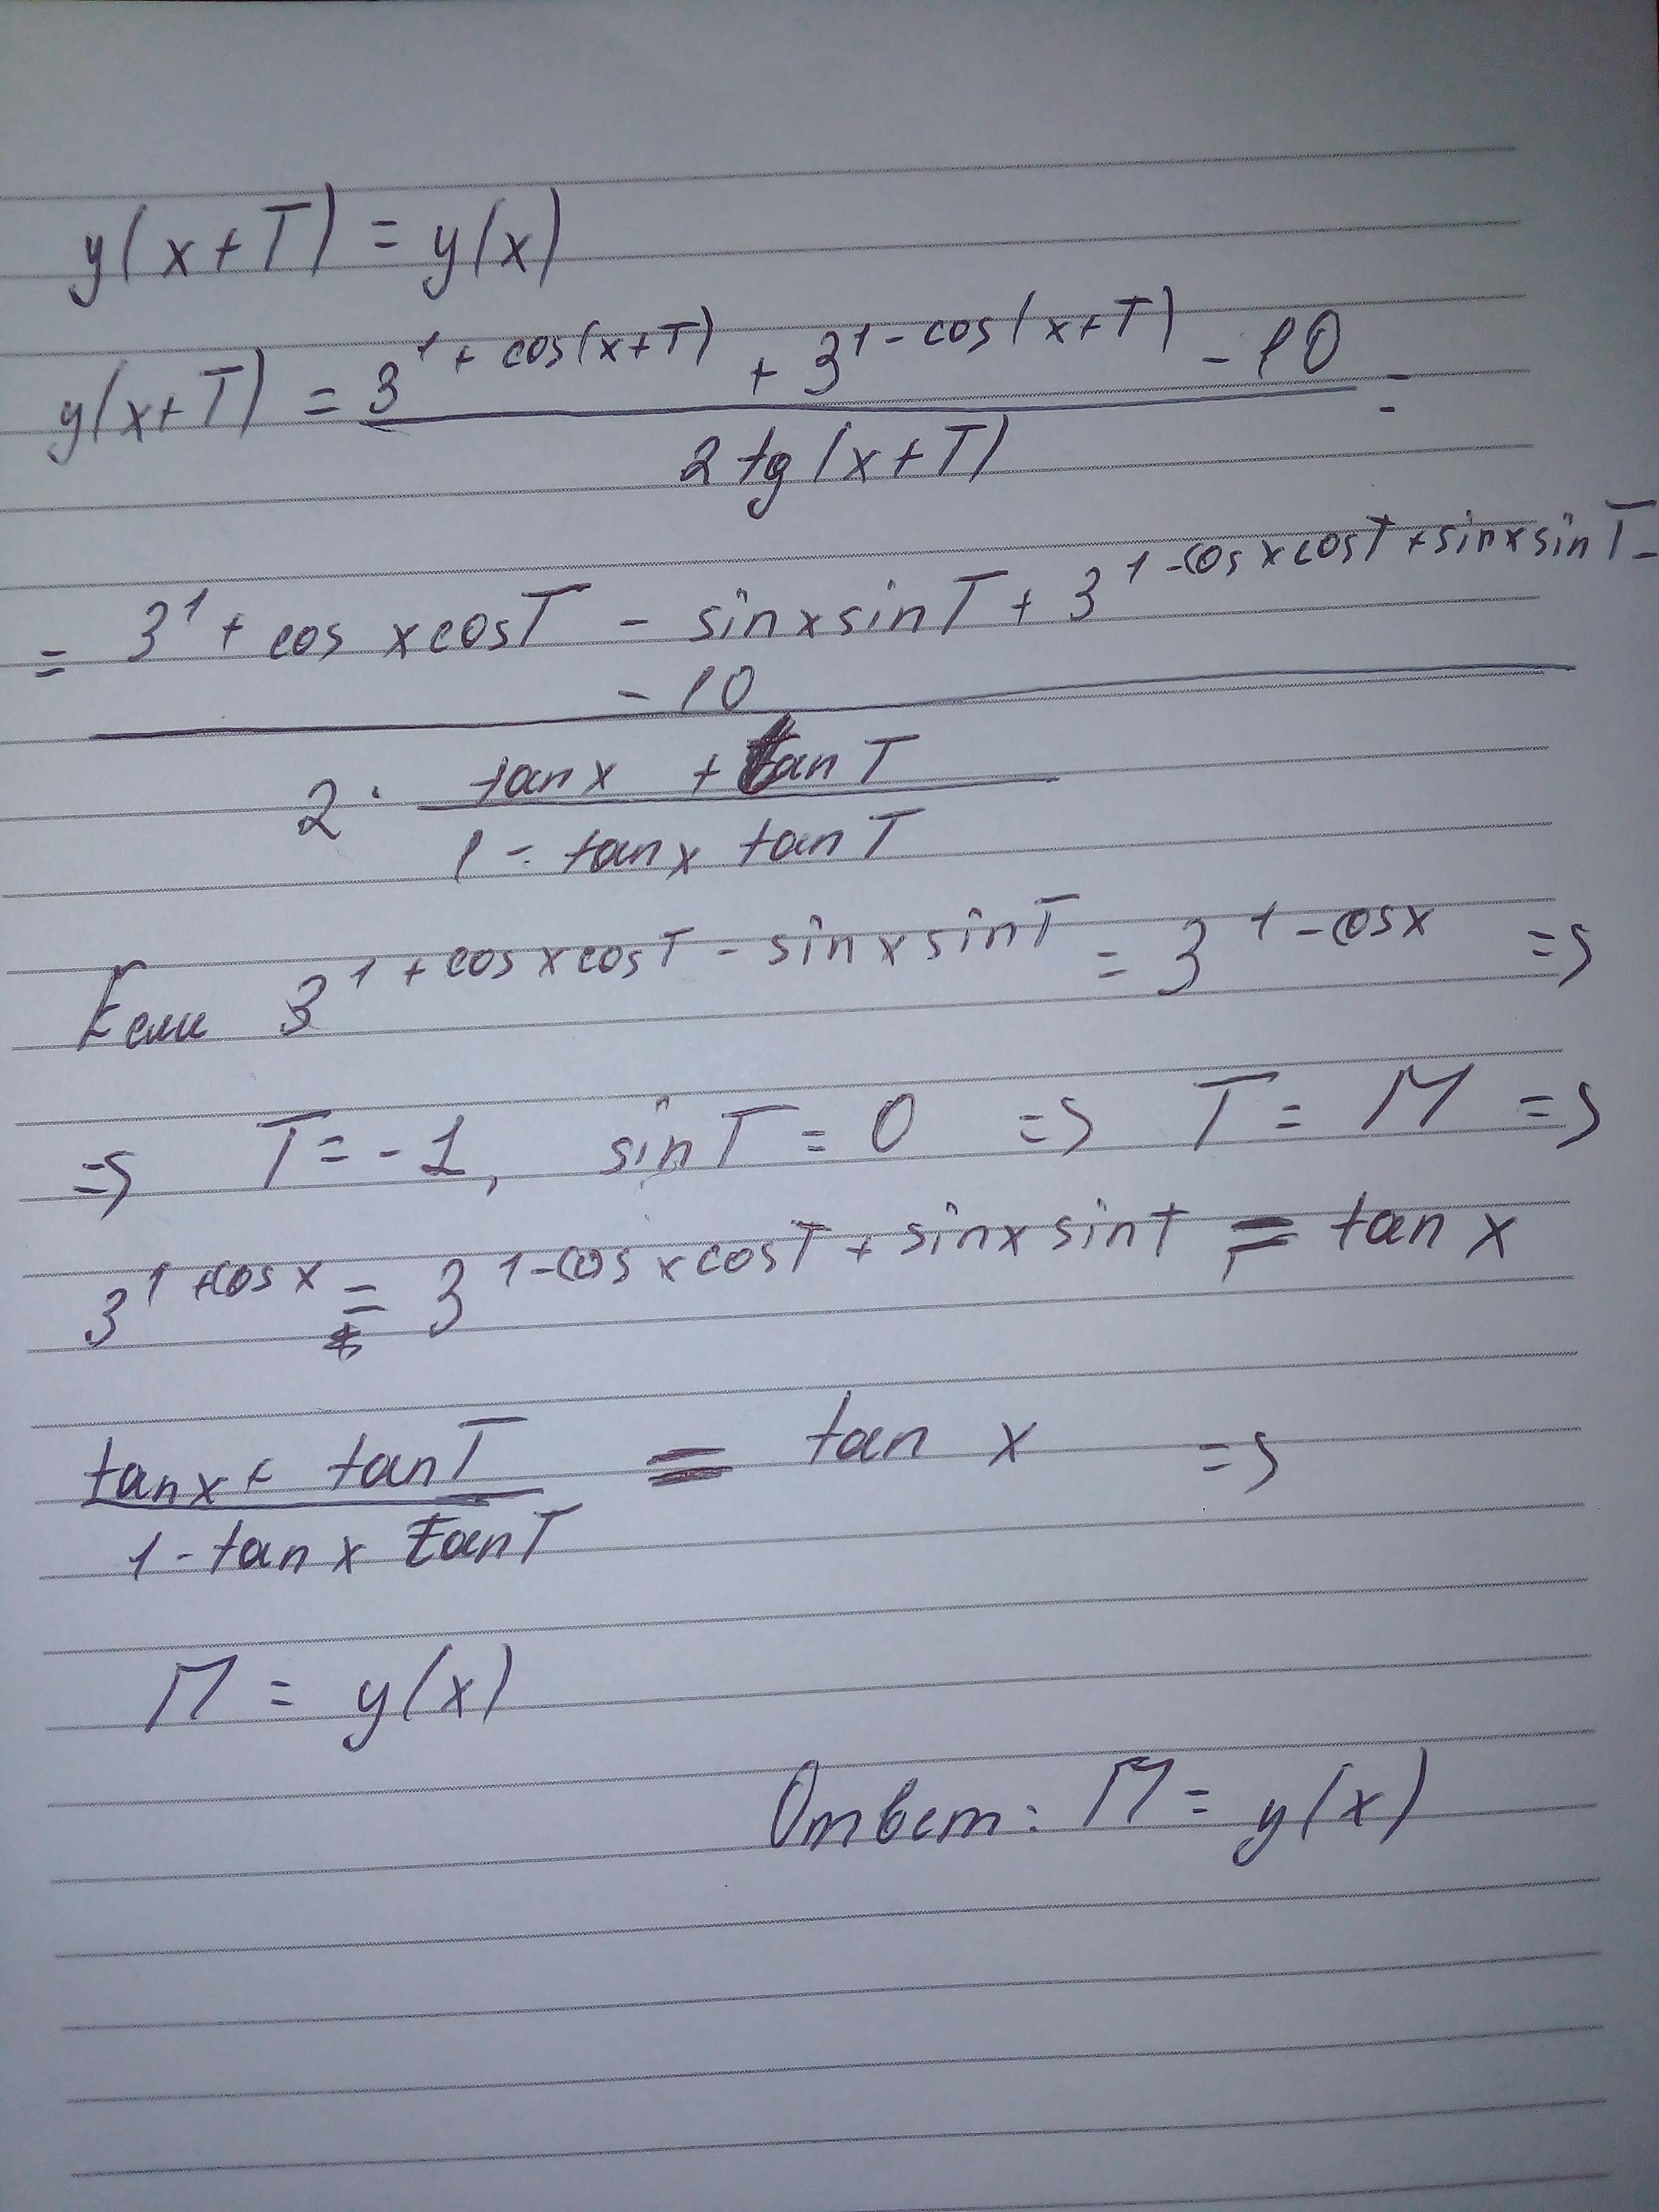 y(x+T) = y(x)
y(x+T) = (3^(1 + cos(x+T)) + 3^(1 - cos(x+T)) - 10) / (2 tg(x+T)) =
= (3^1 + cos x cosT - sinx sinT + 3^(1 - cos x cosT + sinx sinT) -
- 10) /
(2 · (tan x + tan T) / (1 - tan x tan T))
Если 3^(1 + cos x cosT - sin x sinT) = 3^(1 - cosx) =>
=> T = -1, sinT = 0 => T = П =>
3^(1 + cos x) = 3^(1 - cos x cosT + sinx sinT) = tan x
(tanx + tanT) / (1 - tan x tanT) = tan x =>
П = y(x)
Ответ: П = y(x)